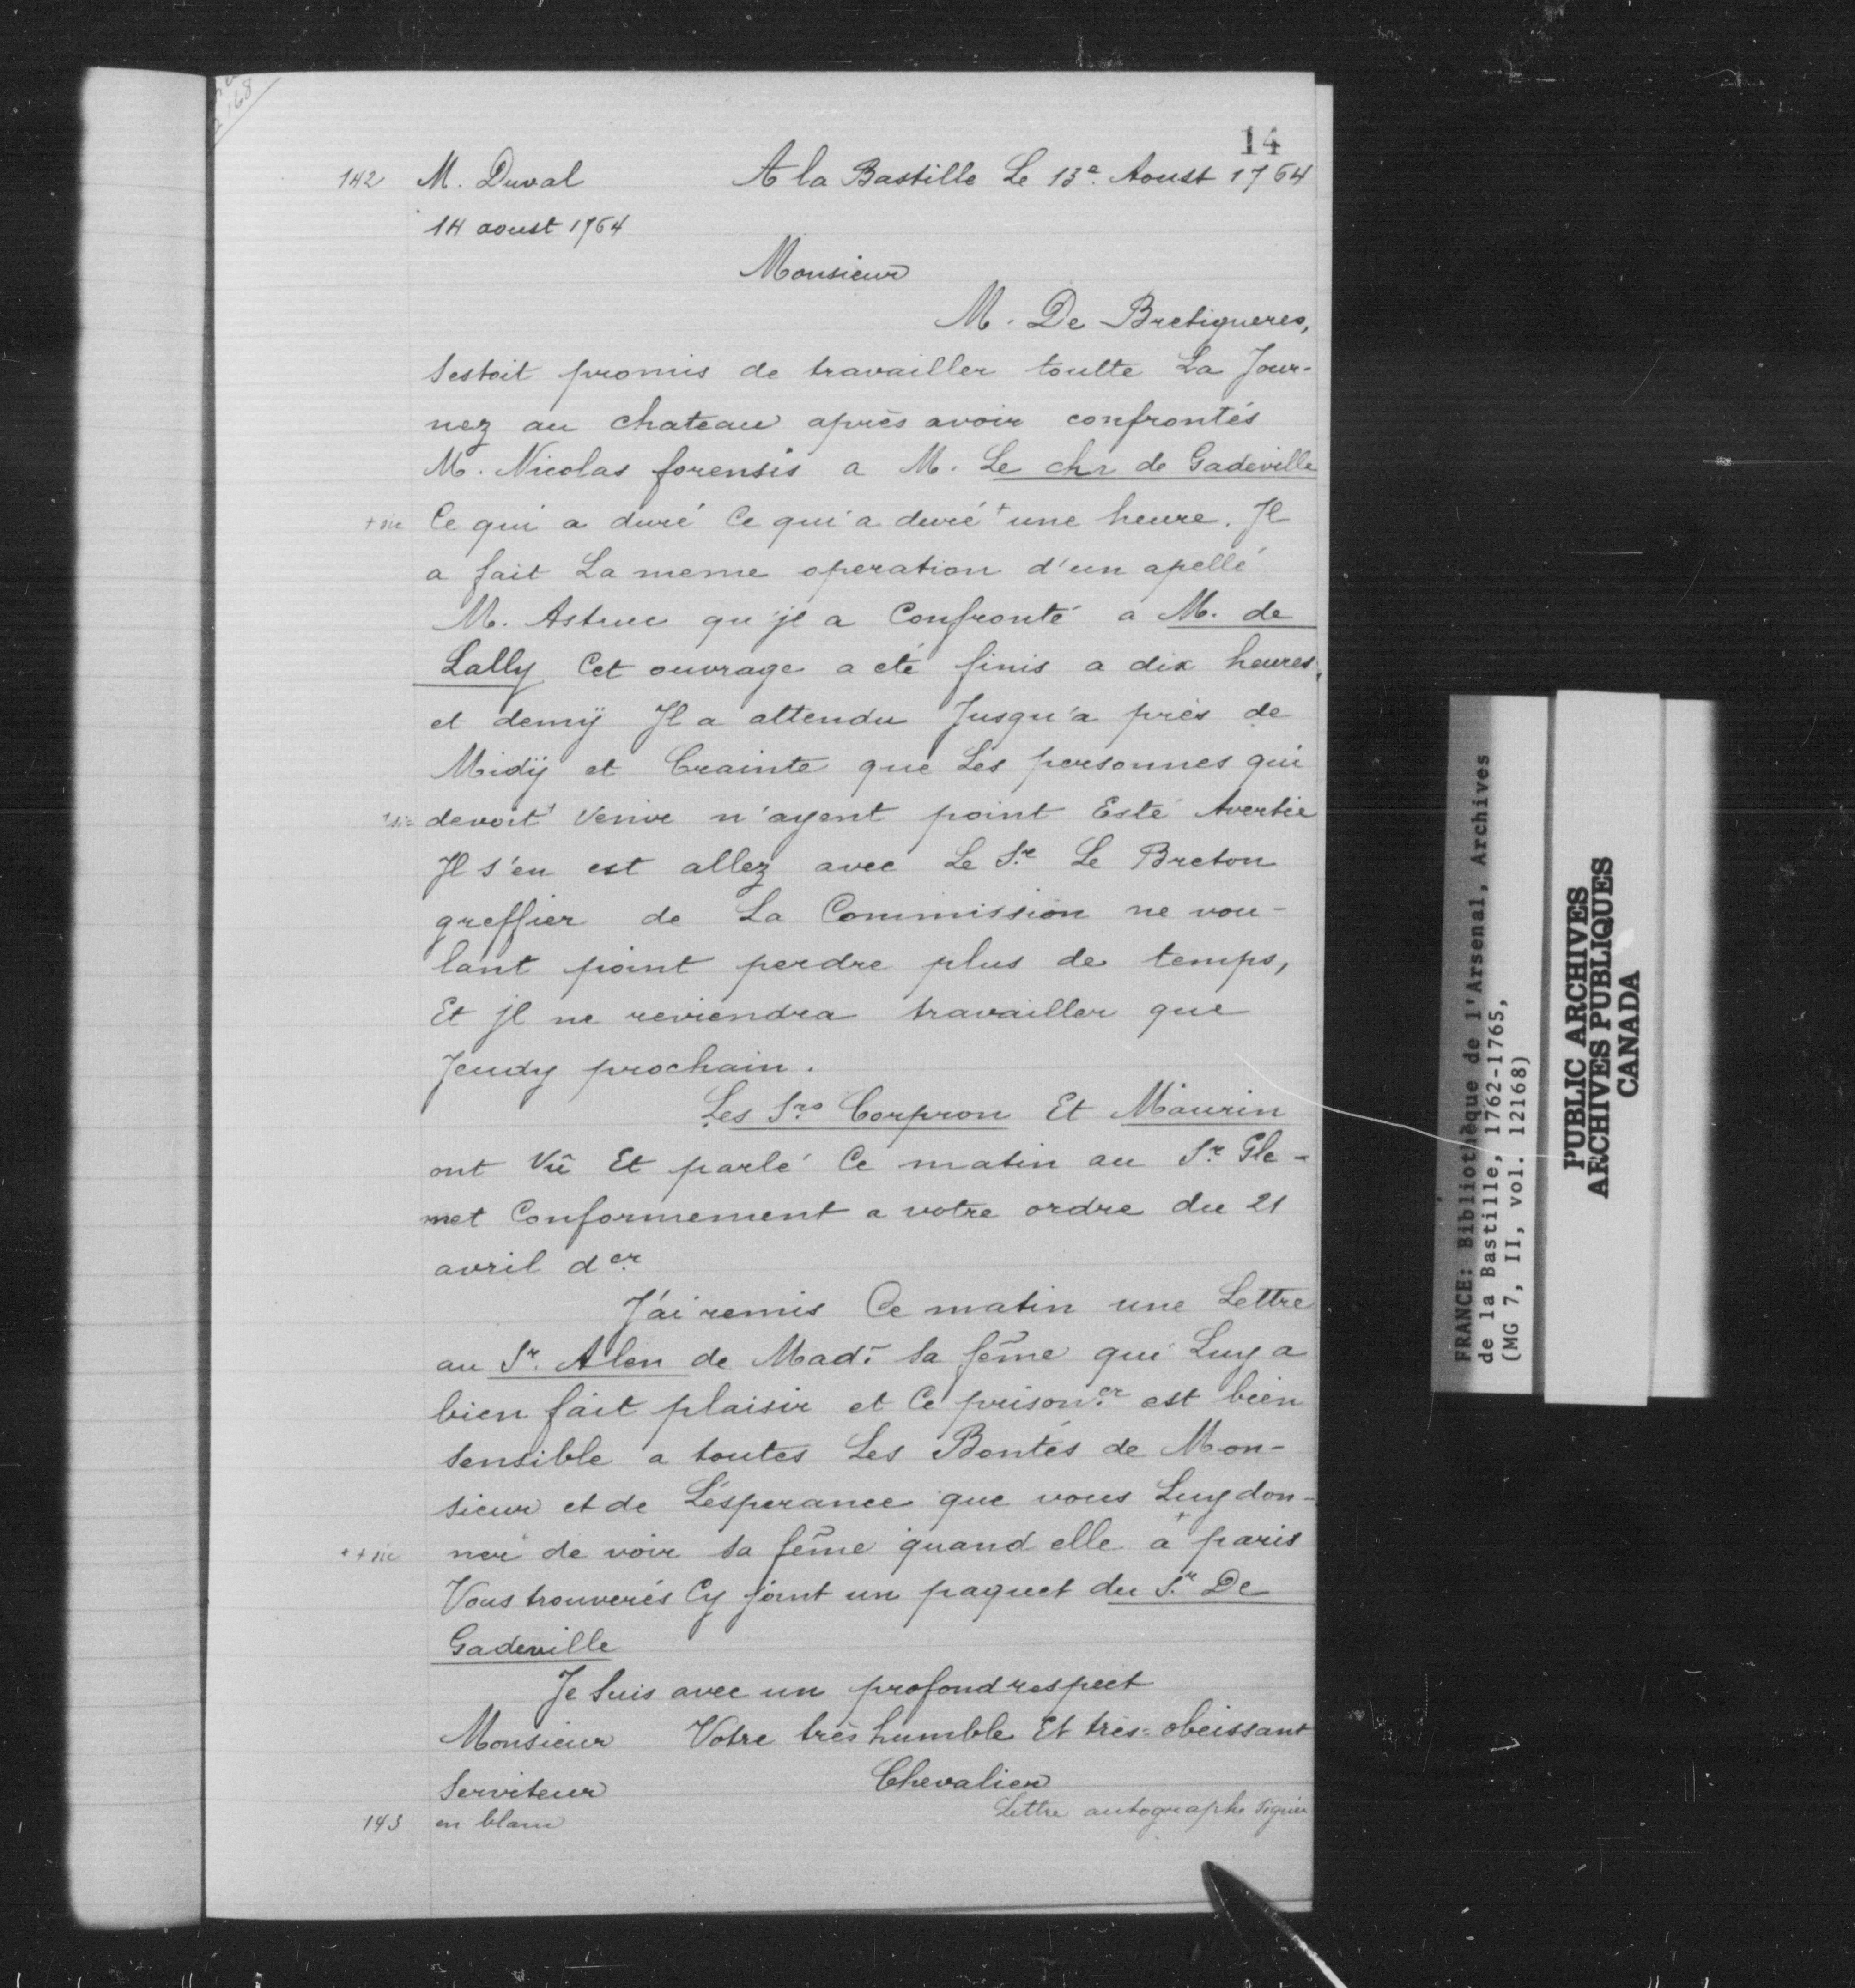 168
14
142 M. Duval A la Bastille Le 13e. Aoust 1764
14 aoust 1764
Monsieur
M. De Bretigneres,
sestoit promis de travailler toutte La Jour-
nez au chateau après avoir confrontés
M. Nicolas forensis a M. Le chr de Gadeville
+ sic Ce qui a duré Ce qui a duré + une heure. Jl
a fait La meme operation d'un apellé
M. Astruc qu'jl a Confronté a M. de
Lally Cet ouvrage a eté finis a dix heures,
et demÿ Jl a attendu Jusqu'a près de
Midÿ et Crainte que Les personnes qui
+ sic devoit + Venir n'ayent point Esté Avertie
Jl s'en est allez avec Le Sr. Le Breton
greffier de La Commission ne vou-
lant point perdre plus de temps,
Et jl ne reviendra travailler que
Jeudy prochain.
Les Srs Corpron Et Maurin
ont Vû Et parlé Ce matin au Sr. Gle-
met Conformement a votre ordre du 21
avril der.
J'ai remis Ce matin une Lettre
au Sr. Alen de Made. sa fẽme qui Luy a
bien fait plaisir et Ce prisoner. est bien
sensible a toutes Les Bontés de Mon-
sieur et de L'ésperance que vous Luy don-
+ + sic ner + de voir sa fẽme quand elle a + paris
Vous trouverés Cy joint un paquet du Sr. De
Gadeville
Je Suis avec un profond respect
Monsieur Votre très humble Et très-obeissant
Serviteur Chevalier
Lettre autographe signée
143 en blanc
FRANCE: Bibliothèque de l'Arsenal, Archives
de la Bastille, 1762-1765,
(MG 7, II, vol. 12168)
PUBLIC ARCHIVES
ARCHIVES PUBLIQUES
CANADA